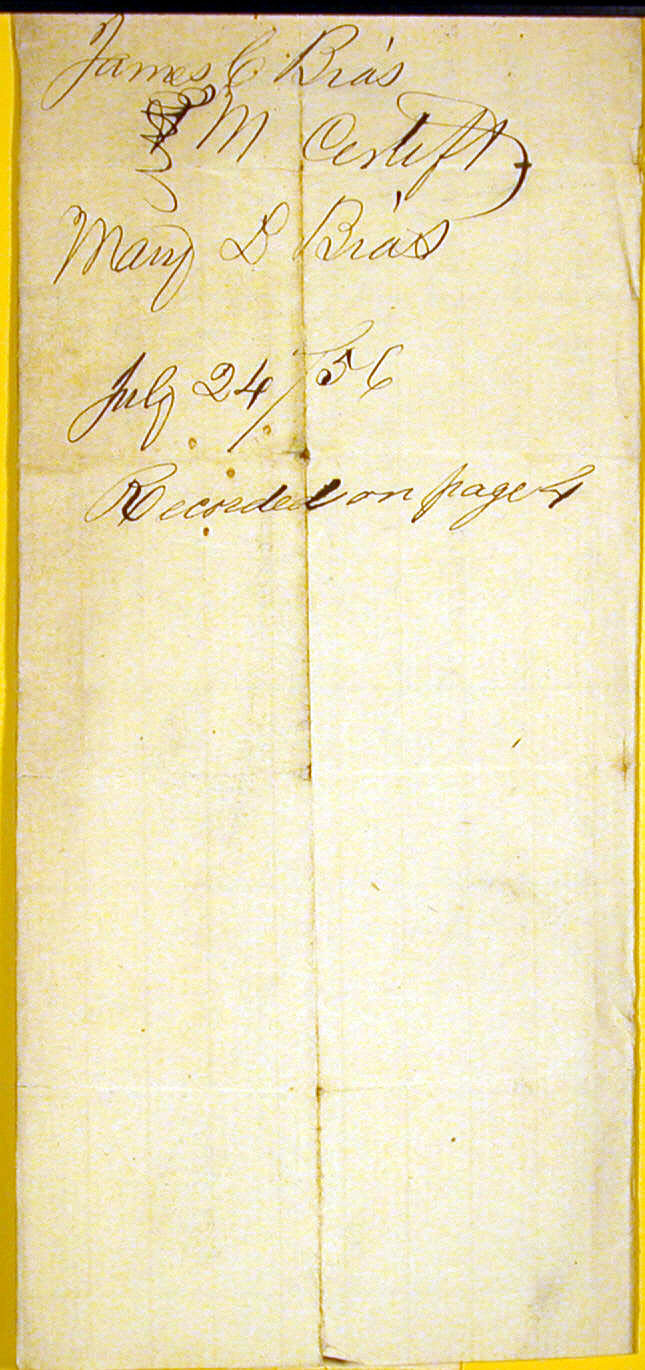 James C Bras
M Certift
Mary D Bras
July 24/56
Recorded on page 4